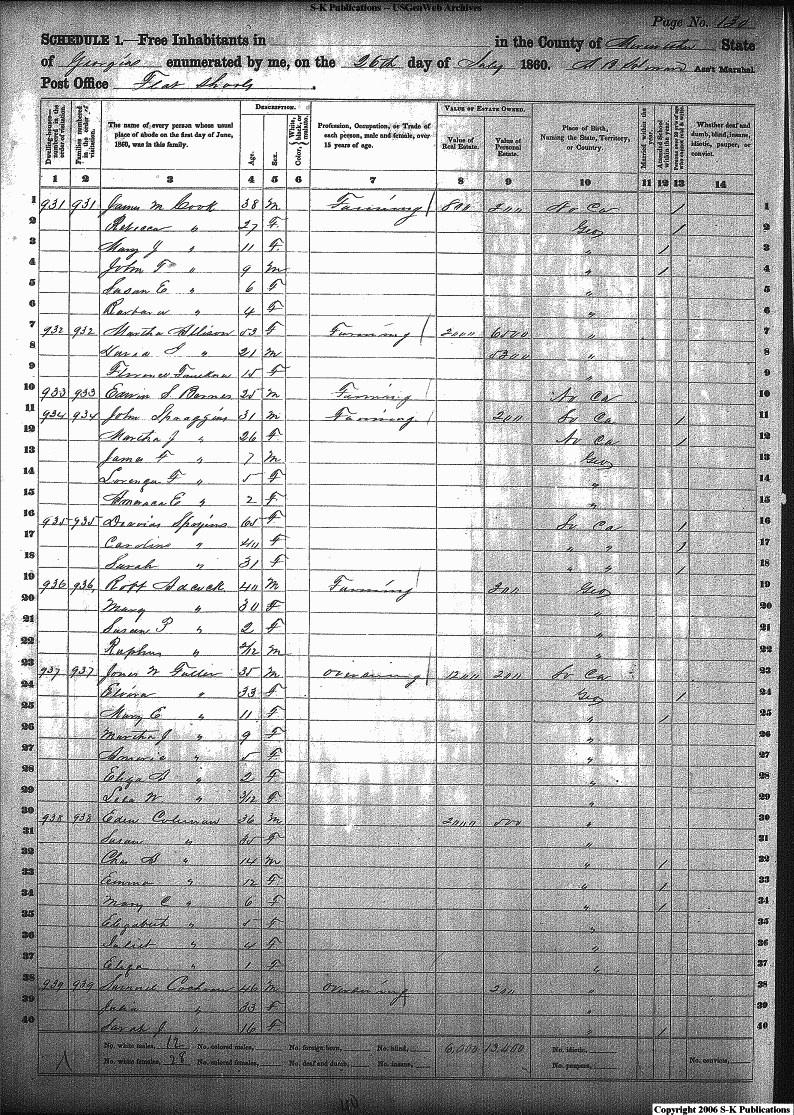 S-K Publications -- USGenWeb Archives
Page No. 130
SCHEDULE 1.—Free Inhabitants in in the County of State
of Georgia enumerated by me, on the 26th day of July 1860. Ass't Marshal
Post Office Flat Shoals
DESCRIPTION. VALUE OF ESTATE OWNED.
Dwelling-houses—numbered in the order of visitation. Families numbered in the order of visitation. The name of every person whose usual place of abode on the first day of June, 1860, was in this family. Age. Sex. Color, White, black, or mulatto. Profession, Occupation, or Trade of each person, male and female, over 15 years of age. Value of Real Estate. Value of Personal Estate. Place of Birth, Naming the State, Territory, or Country. Married within the year. Attended School within the year. Whether deaf and dumb, blind, insane, idiotic, pauper, or convict.
1 2 3 4 5 6 7 8 9 10 11 12 13 14
1 931 931 James M Cook 38 M Farming 800 200 No Ca / 1
2 Rebecca " 27 F Geo / 2
3 Mary J " 11 F " / 3
4 John F " 9 M " / 4
5 Susan E " 6 F " 5
6 Barbara " 4 F " 6
7 932 932 Martha Allison 53 F Farming 2000 6500 " 7
8 " 21 M 5300 " 8
9 Florence 15 F 9
10 933 933 Edwin S Barnes 25 M Farming No Ca 10
11 934 934 John Spraggins 31 M Farming 200 So Ca / 11
12 Martha J " 26 F No Ca / 12
13 James F " 7 M Geo 13
14 F " 5 F " 14
15 E " 2 F " 15
16 935 935 65 F So Ca / 16
17 Caroline " 40 F " " / 17
18 Sarah " 31 F " " / 18
19 936 936 Robt Adcock 40 M Farming 200 Geo 19
20 Mary " 30 F " 20
21 Susan P " 2 F " 21
22 Raphus " M " 22
23 937 937 Jones W Fuller 35 M overseeing 1200 200 So Ca 23
24 Elvira " 33 F Geo / 24
25 Mary E " 11 F " / 25
26 Martha J " 9 F " 26
27 " 5 F " 27
28 Eliza A " 2 F " 28
29 W " 3/12 F " 29
30 938 938 Eden Coleman 36 M 2000 500 " 30
31 Susan " 35 F " 31
32 Chas A " 14 M " / 32
33 Emma " 12 F " / 33
34 Mary C " 6 F " / 34
35 Elizabeth " 5 F " 35
36 Juliet " 4 F " 36
37 Eliza " 1 F " 37
38 939 939 Cochran 46 M overseeing 200 " 38
39 Julia " 33 F " 39
40 Sarah J " 16 F " / 40
No. white males, 12 No. colored males, No. foreign born, No. blind, 6,000 13,400 No. idiotic,
No. white females, 28 No. colored females, No. deaf and dumb, No. insane, No. paupers, No. convicts,
Copyright 2006 S-K Publications